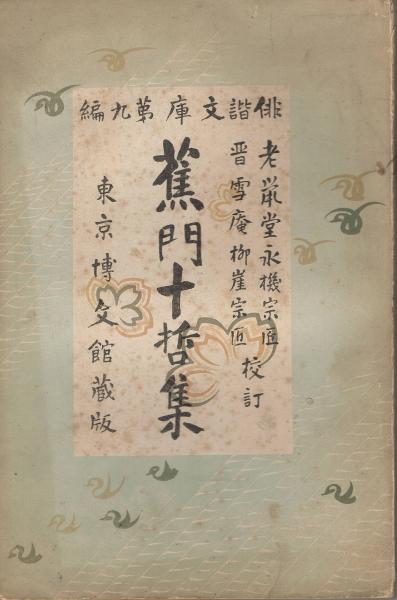 俳諧文庫第九編
老鼠堂永機宗匠
晋雪庵柳崖宗匠
校訂
蕉門十哲集
東京博文館蔵版